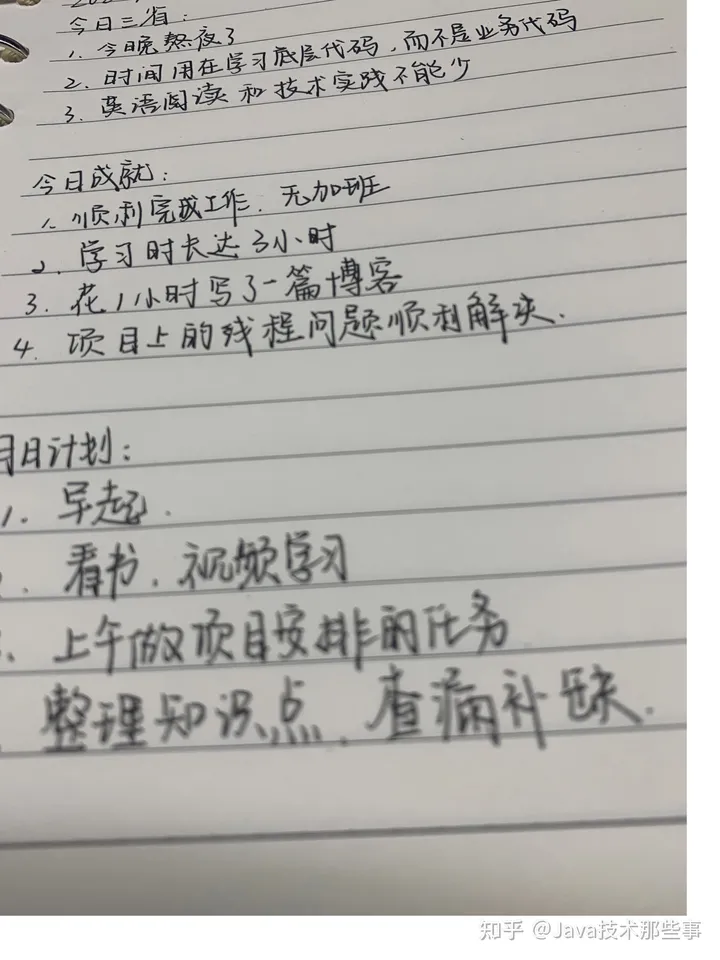 今日三省:
1. 今晚熬夜了
2. 时间用在学习底层代码,而不是业务代码
3. 英语阅读和技术实践不能少
今日成就:
1. 顺利完成工作、无加班
2. 学习时长达3小时
3. 花1小时写了一篇博客
4. 项目上的线程问题顺利解决.
日计划:
1. 早起.
看书、视频学习
上午做项目安排的任务
整理知识点、查漏补缺.
知乎 @Java技术那些事